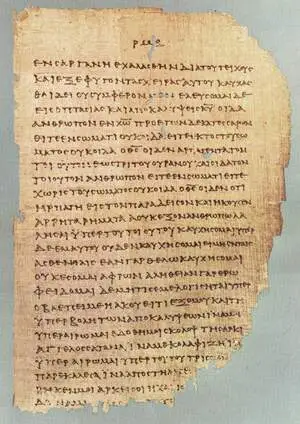 ΕΝ ΣΑΡΓΑΝΗ ΕΧΑΛΑΣΘΗΝ ΔΙΑ ΤΟΥ ΤΕΙΧΟΥΣ
ΚΑΙ ΕΞΕΦΥΓΟΝ ΤΑΣ ΧΕΙΡΑΣ ΑΥΤΟΥ ΚΑΥΧΑΣ
ΘΑΙ ΔΕΙ ΟΥ ΣΥΜΦΕΡΟΝ ΜΕΝ ΕΛΕΥΣΟΜΑΙ ΔΕ
ΕΙΣ ΟΠΤΑΣΙΑΣ ΚΑΙ ΑΠΟΚΑΛΥΨΕΙΣ Κ̅Υ̅ ΟΙΔΑ
ΑΝΘΡΩΠΟΝ ΕΝ Χ̅Ρ̅Ω̅ ΠΡΟ ΕΤΩΝ ΔΕΚΑΤΕΣΣΑΡΩΝ
ΕΙΤΕ ΕΝ ΣΩΜΑΤΙ ΟΥΚ ΟΙΔΑ ΕΙΤΕ ΕΚΤΟΣ ΤΟΥ ΣΩ
ΜΑΤΟΣ ΟΥΚ ΟΙΔΑ Ο Θ̅Σ̅ ΟΙΔΕΝ ΑΡΠΑΓΕΝΤΑ ΤΟΝ
ΤΟΙΟΥΤΟΝ ΕΩΣ ΤΡΙΤΟΥ ΟΥΡΑΝΟΥ ΚΑΙ ΟΙΔΑ ΤΟΝ
ΤΟΙΟΥΤΟΝ ΑΝΘΡΩΠΟΝ ΕΙΤΕ ΕΝ ΣΩΜΑΤΙ ΕΙΤΕ
ΧΩΡΙΣ ΤΟΥ ΣΩΜΑΤΟΣ ΟΥΚ ΟΙΔΑ Ο Θ̅Σ̅ ΟΙΔΕΝ ΟΤΙ
ΗΡΠΑΓΗ ΕΙΣ ΤΟΝ ΠΑΡΑΔΕΙΣΟΝ ΚΑΙ ΗΚΟΥΣΕΝ
ΑΡΡΗΤΑ ΡΗΜΑΤΑ Α ΟΥΚ ΕΞΟΝ ΑΝΘΡΩΠΩ ΛΑ
ΛΗΣΑΙ ΥΠΕΡ ΤΟΥ ΤΟΙΟΥΤΟΥ ΚΑΥΧΗΣΟΜΑΙ ΥΠΕΡ
ΔΕ ΕΜΑΥΤΟΥ ΟΥΔΕΝ ΚΑΥΧΗΣΟΜΑΙ ΕΙ ΜΗ ΕΝ ΤΑΙΣ
ΑΣΘΕΝΕΙΑΙΣ ΕΑΝ ΓΑΡ ΘΕΛΩ ΚΑΥΧΗΣΟΜΑΙ
ΟΥΚ ΕΣΟΜΑΙ ΑΦΡΩΝ ΑΛΗΘΕΙΑΝ ΓΑΡ ΕΡΩ
ΦΕΙΔΟΜΑΙ ΔΕ ΜΗ ΤΙΣ ΕΜΕ ΛΟΓΙΣΗΤΑΙ ΥΠΕΡ
Ο ΒΛΕΠΕΙ ΜΕ Η ΑΚΟΥΕΙ ΤΙ ΕΞ ΕΜΟΥ ΚΑΙ ΤΗ
ΥΠΕΡΒΟΛΗ ΤΩΝ ΑΠΟΚΑΛΥΨΕΩΝ ΙΝΑ ΜΗ
ΥΠΕΡΑΙΡΩΜΑΙ ΕΔΟΘΗ ΜΟΙ ΣΚΟΛΟΨ ΤΗ ΣΑΡΚΙ
ΑΓΓΕΛΟΣ ΣΑΤΑΝΑ ΙΝΑ ΜΕ ΚΟΛΑΦΙΖΗ
ΥΠΕΡΑΙΡΩΜΑΙ ΥΠΕΡ ΤΟΥΤΟΥ ΤΡΙΣ
ΠΑΡΕΚΑΛΕΣΑ ΙΝΑ ΑΠΟΣΤΗ
ΡΗΚΕΝ ΜΟΙ ΑΡΚΕΙ ΣΟΙ Η ΧΑΡΙΣ